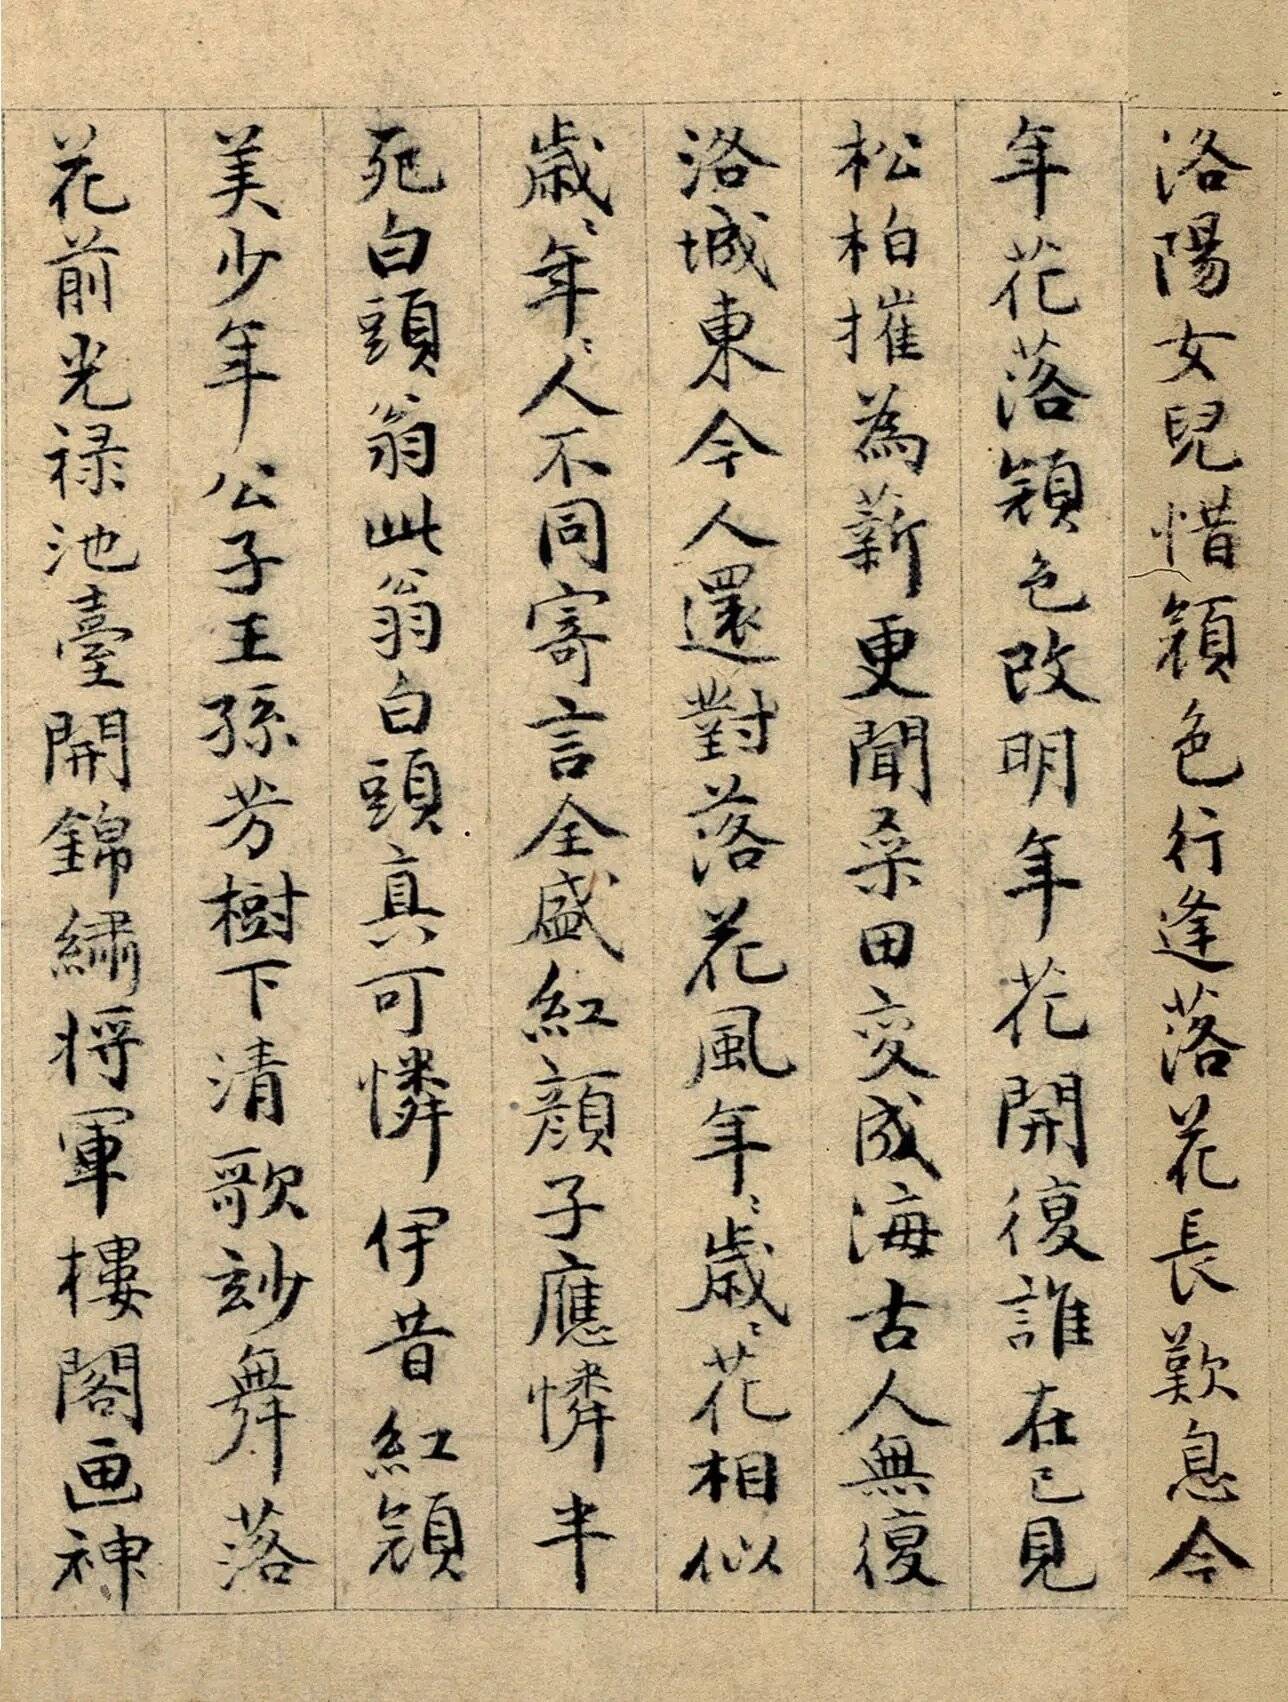 洛陽女兒惜顔色行逢落花長歎息今
年花落顔色改明年花開復誰在已見
松柏摧為薪更聞桑田変成海古人無復
洛城東今人還對落花風年〻歳〻花相似
歳〻年〻人不同寄言全盛紅顔子應憐半
死白頭翁此翁白頭真可憐伊昔紅顔
美少年公子王孫芳樹下清歌玅舞落
花前光禄池臺開錦繡将軍樓閣画神